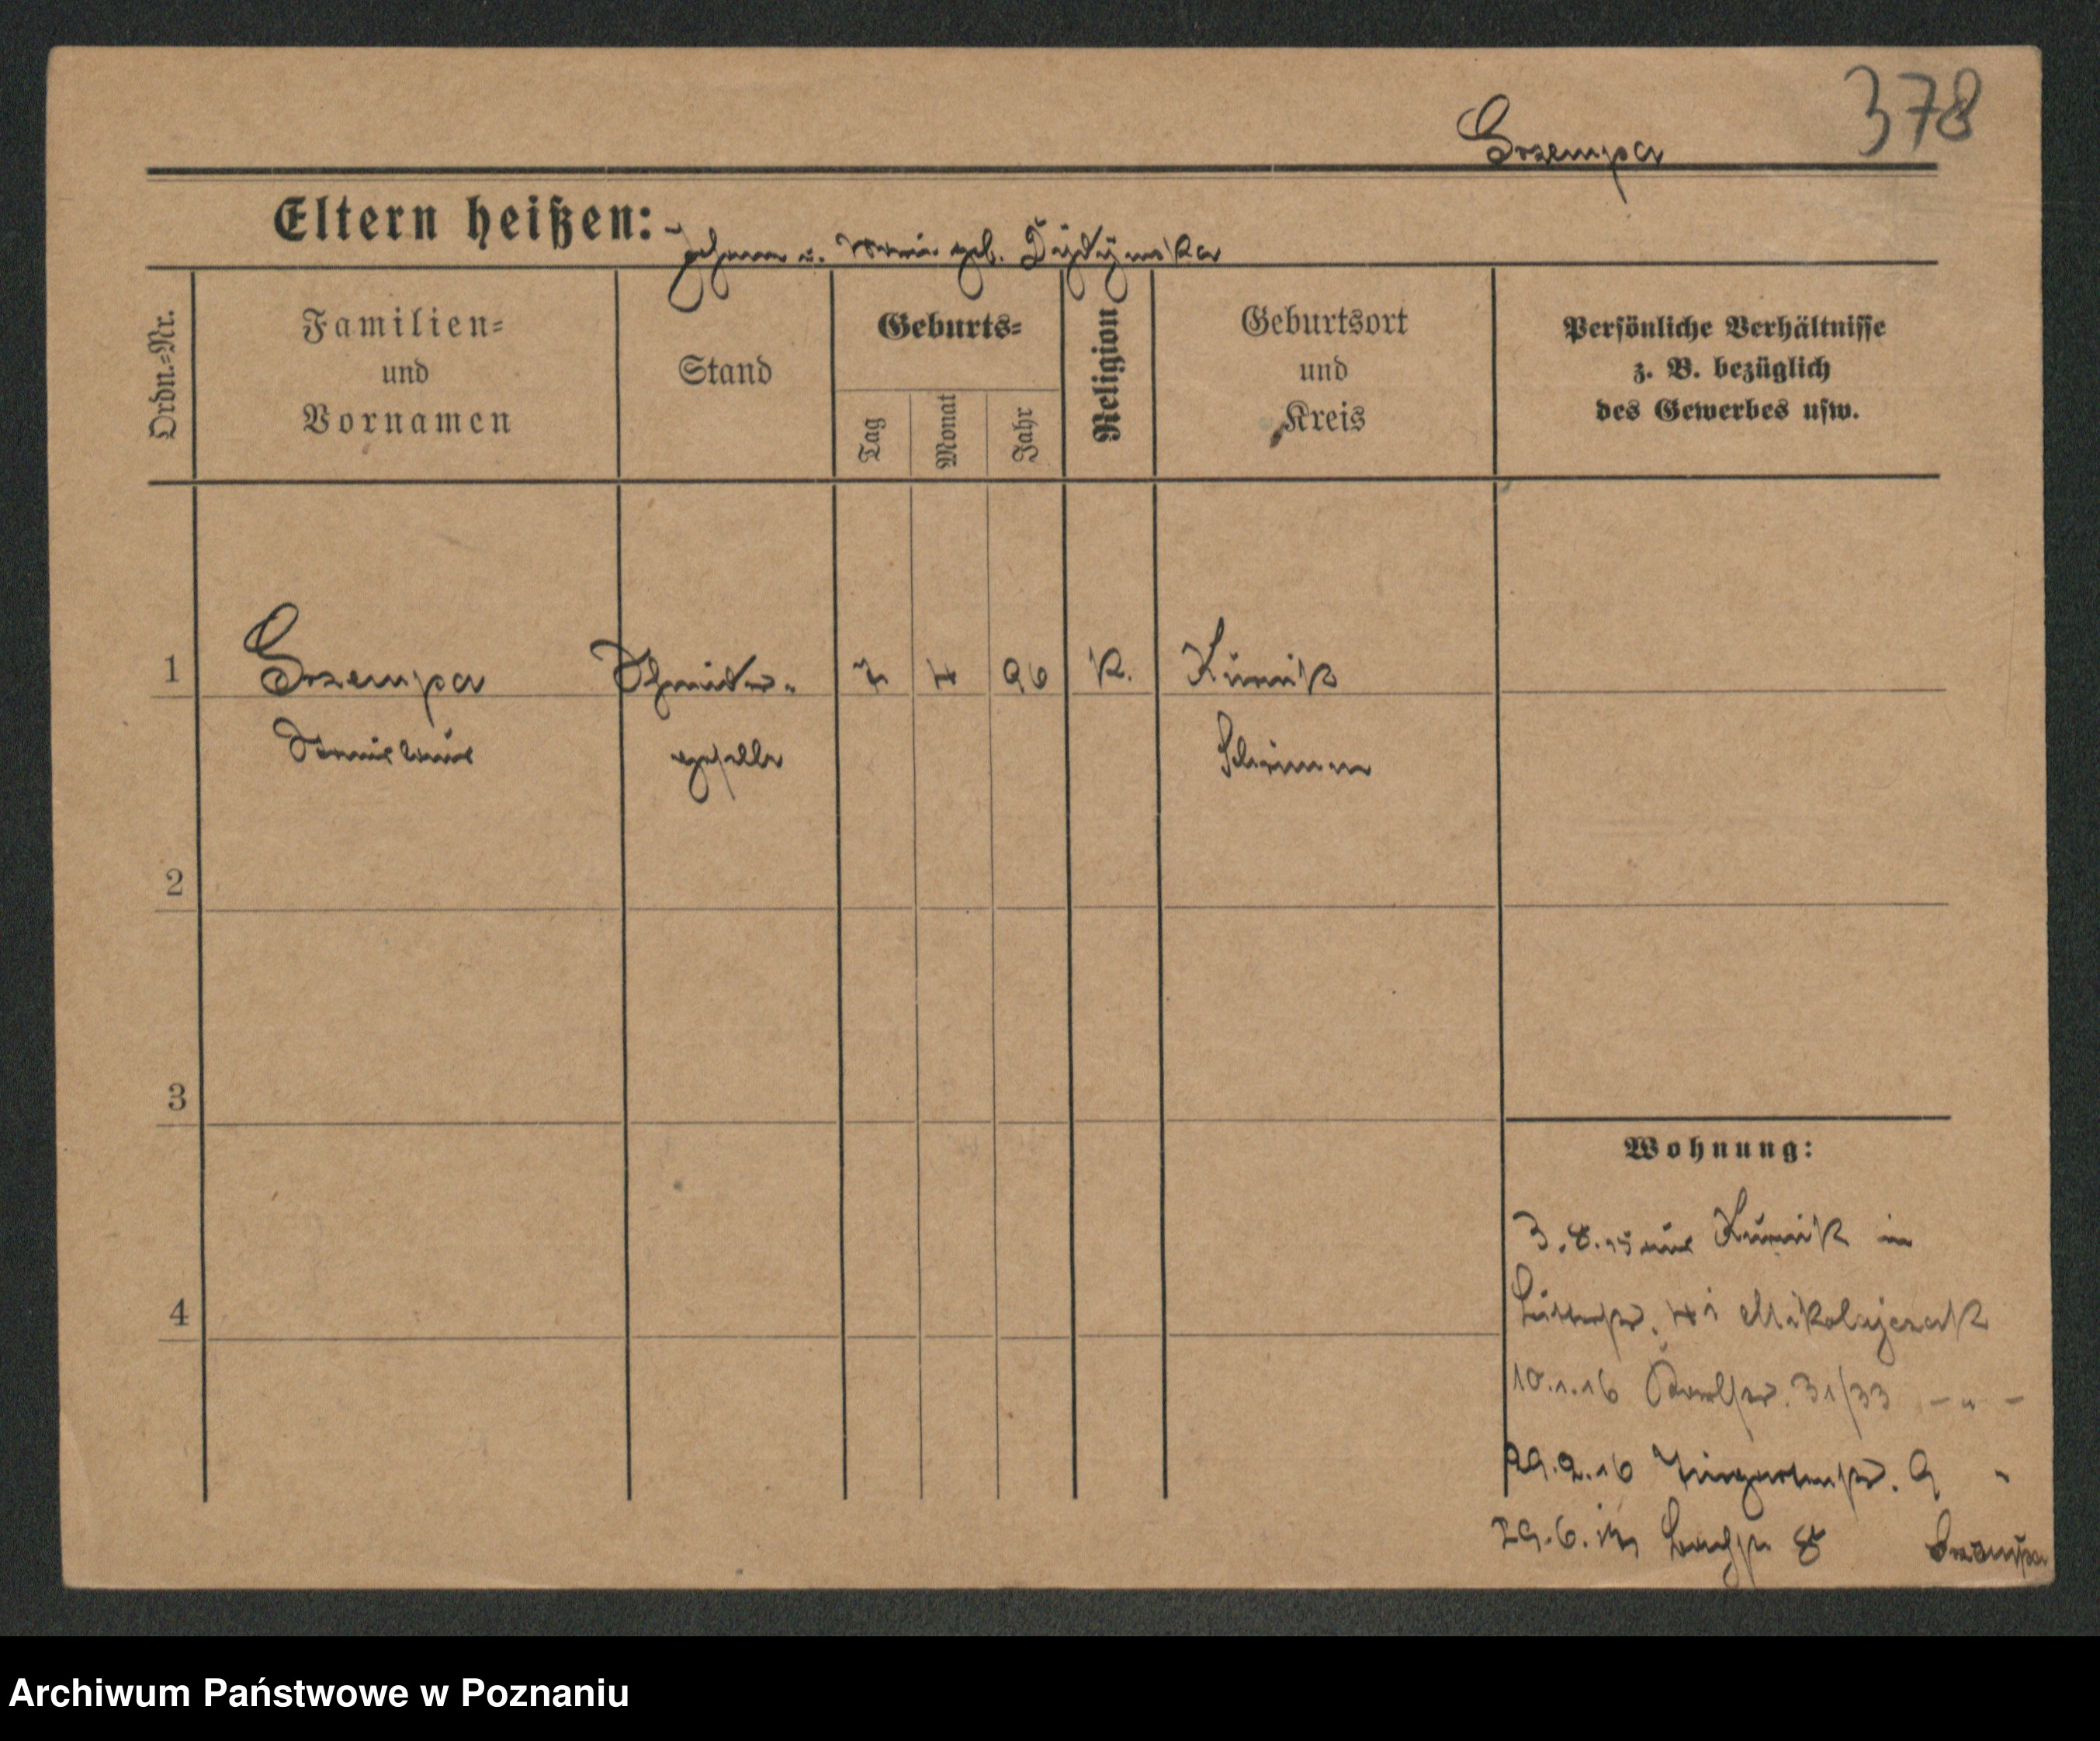 378
Grzempa
Eltern heißen: Johann u. Maria geb. Dydymska
Ordn.-Nr.
Familien-
und
Vornamen
Stand
Geburts-
Tag
Monat
Jahr
Religion
Geburtsort
und
Kreis
Persönliche Verhältnisse
z. B. bezüglich
des Gewerbes usw.
1 Grzempa Schneider- 7 4 96 K. Kurnik
Stanislaus geselle Schrimm
2
3
Wohnung:
3.8.15 aus Kurnik in
4
41 Mikolajczak
10.1.16 31/33 - " -
29.2.16 9 "
29.6. 8
Archiwum Państwowe w Poznaniu